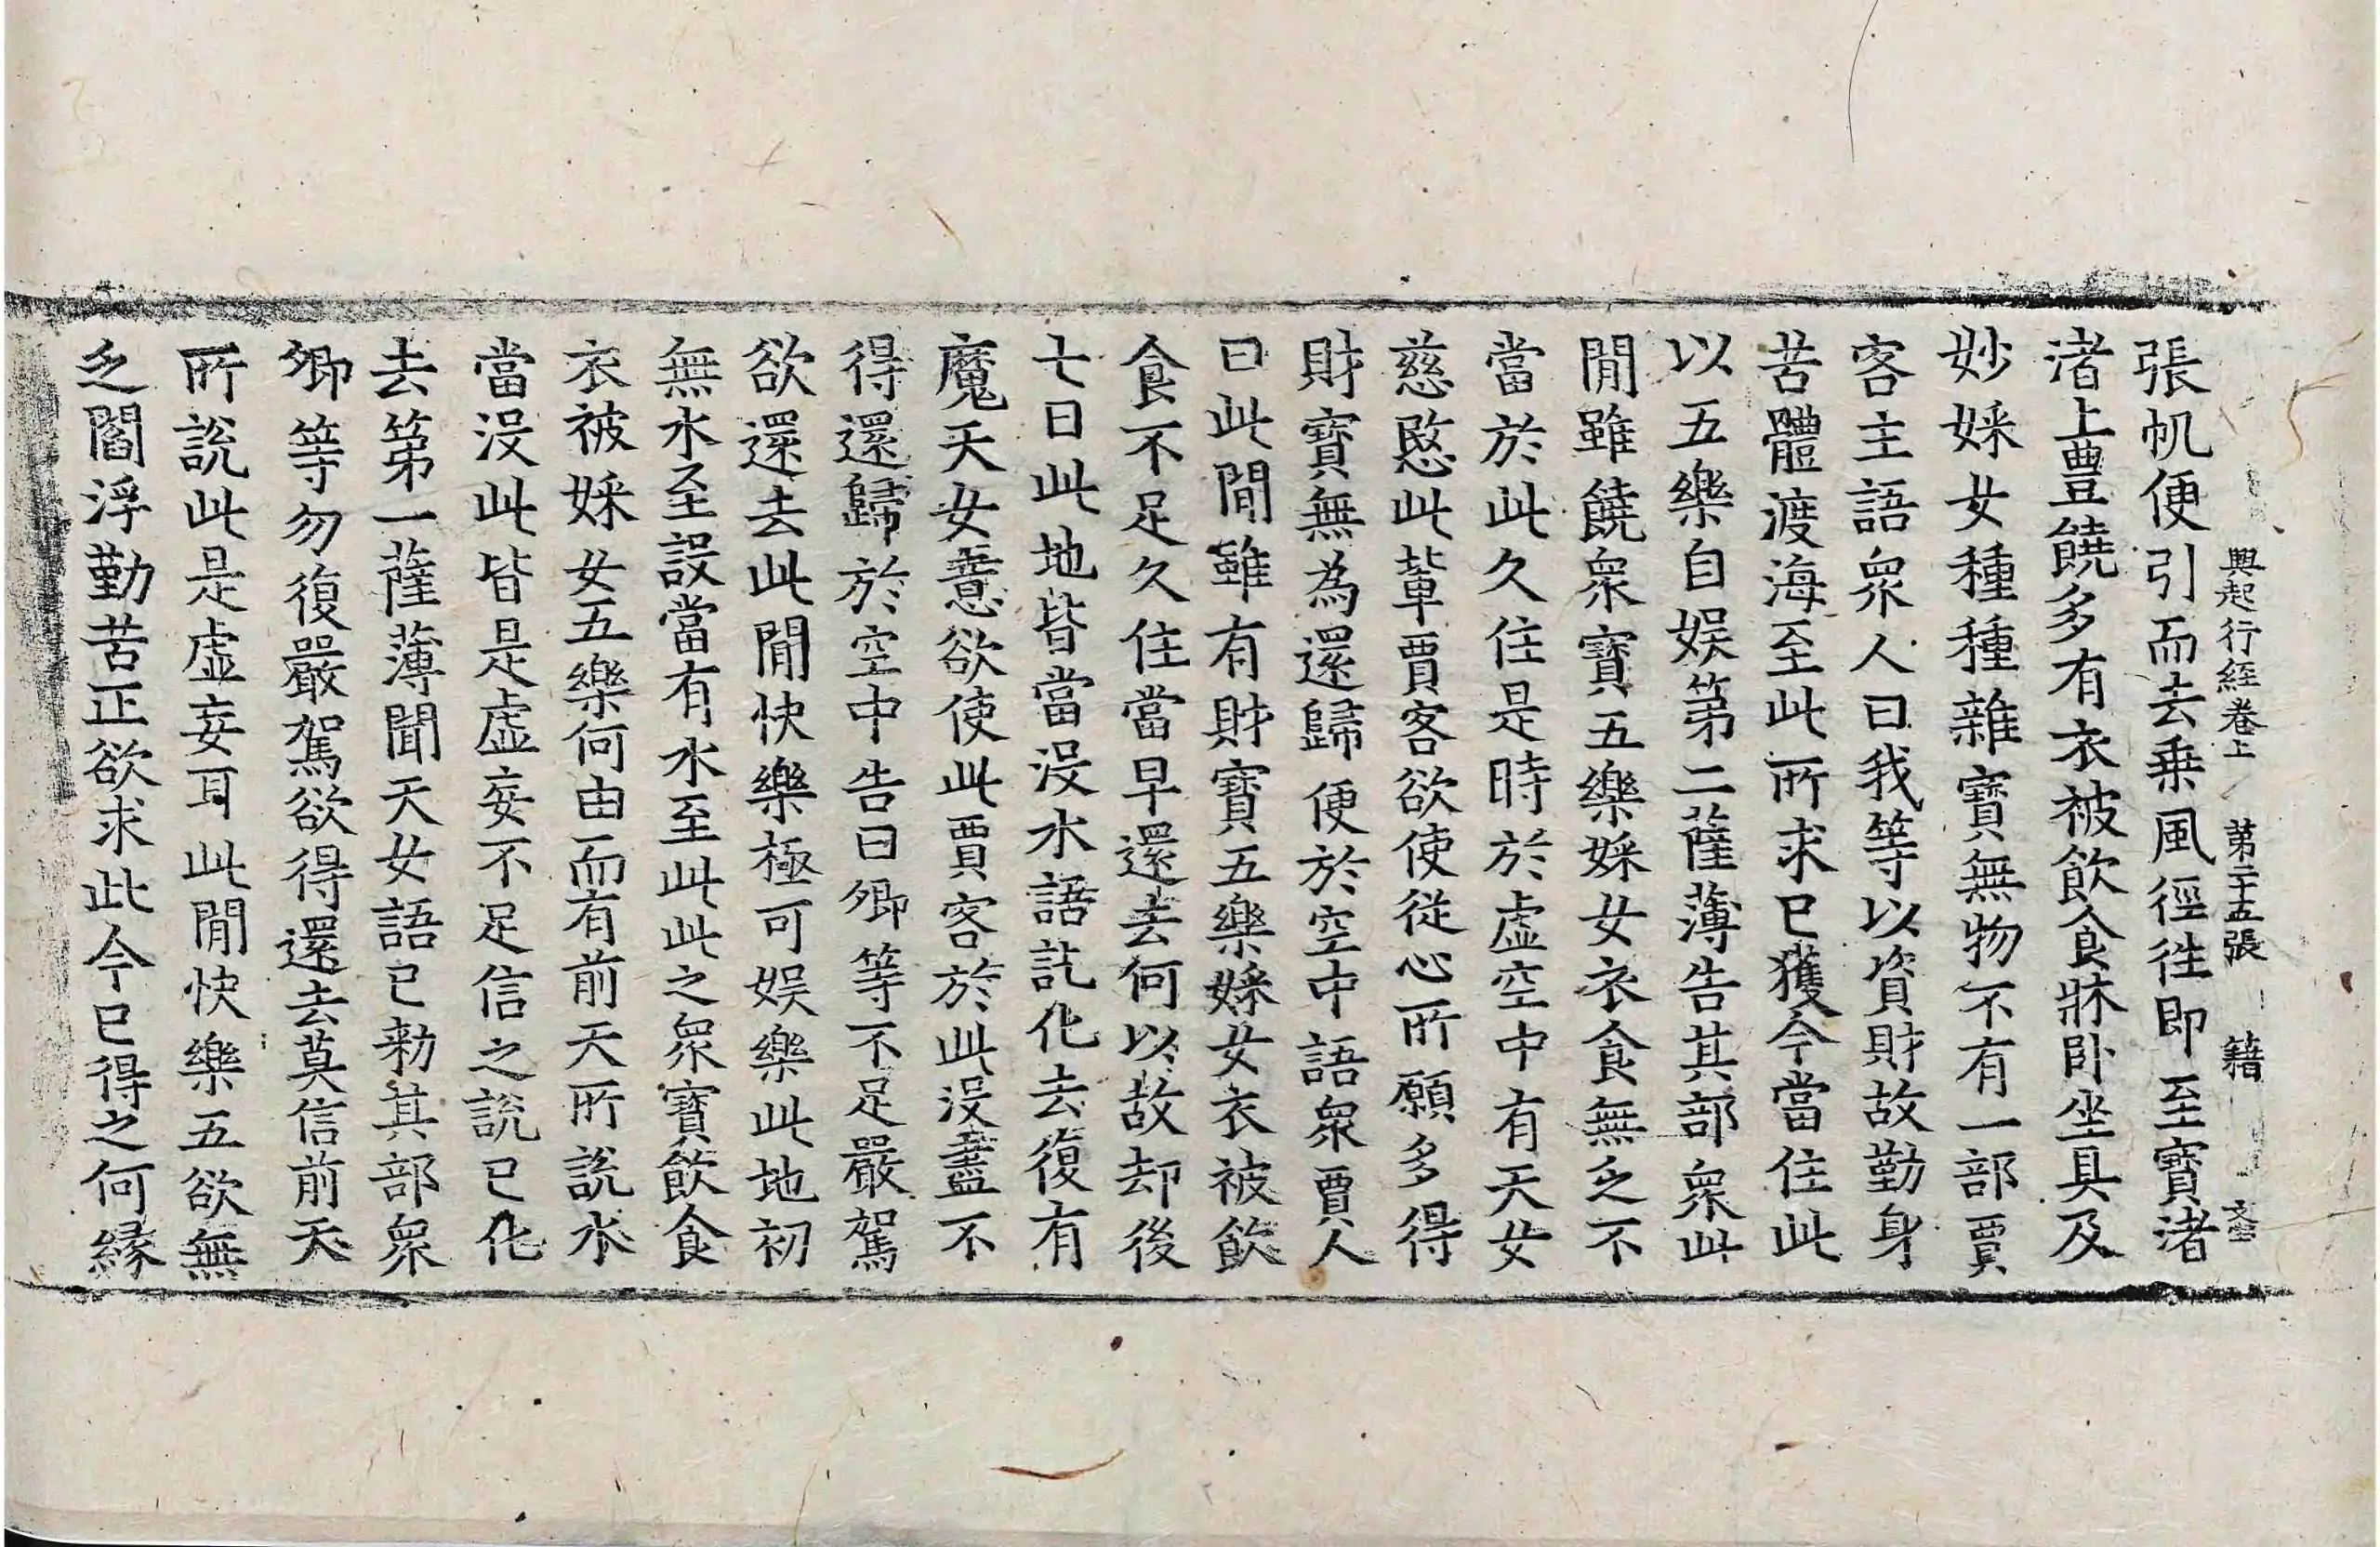 興起行經卷上　第二十五張　籍　文
張帆便引而去乗風徑徃即至寶渚
渚上豊饒多有衣被飲食牀卧坐具及
妙婇女種種雜寶無物不有一部賈
客主語衆人曰我等以資財故勤身
苦體渡海至此所求已獲今當住此
以五樂自娱第二薩薄告其部衆此
閒雖饒衆寶五樂婇女衣食無乏不
當於此久住是時於虚空中有天女
慈愍此軰賈客欲使従心所願多得
財寶無為還歸便於空中語衆賈人
曰此閒雖有財寶五樂婇女衣被飲
食不足久住當早還去何以故却後
七日此地皆當没水語訖化去復有
魔天女意欲使此賈客於此没盡不
得還歸於空中告曰卿等不足嚴駕
欲還去此閒快樂極可娱樂此地初
無水至設當有水至此此之衆寶飲食
衣被婇女五樂何由而有前天所說水
當没此皆是虚妄不足信之說已化
去第一薩薄聞天女語已勑其部衆
卿等勿復嚴駕欲得還去莫信前天
所說此是虚妄耳此閒快樂五欲無
乏閻浮勤苦正欲求此今已得之何縁